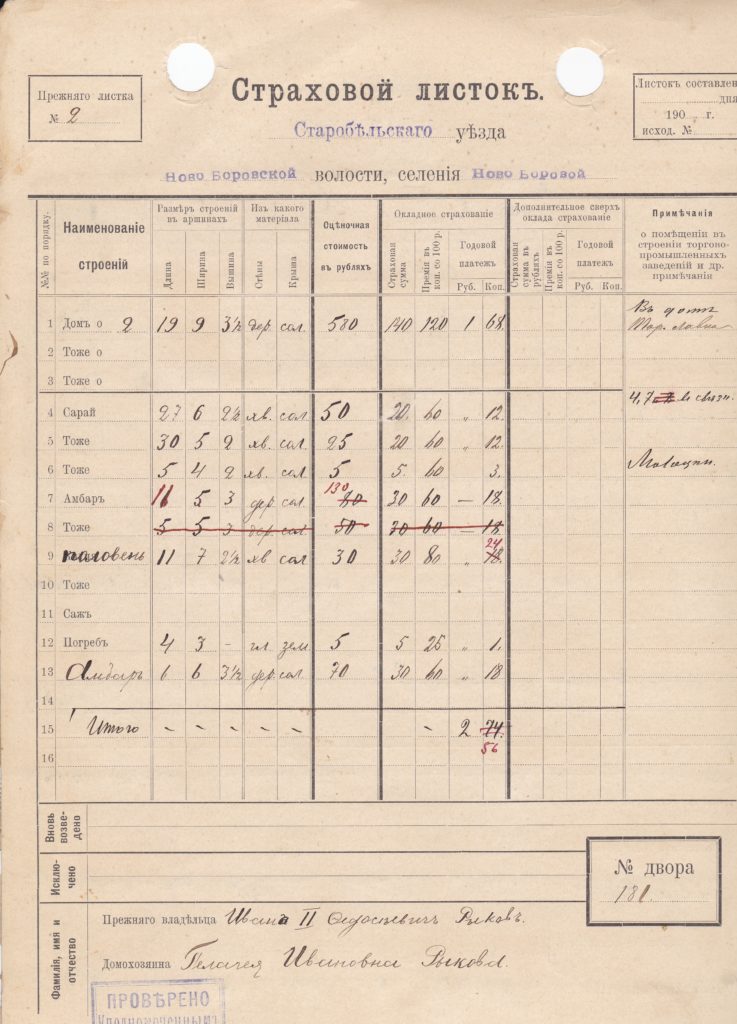 Страховой листокъ.
Прежняго листка
№ 2
Листокъ составлен
дня
190 г.
исход. №
Старобѣльскаго уѣзда
Ново Боровской волости, селенія Ново Боровой
№№ по порядку.
Наименованіе строеній
Размѣръ строеній въ аршинахъ
Длина Ширина Вышина
Изъ какого матеріала
Стѣны Крыша
Оцѣночная стоимость въ рубляхъ
Окладное страхованіе
Страховая сумма
Премія въ коп. со 100 р.
Годовой платежъ
Руб. Коп.
Дополнительное сверхъ оклада страхованіе
Страховая сумма въ рубляхъ
Премія въ коп. со 100 р.
Годовой платежъ
Руб. Коп.
Примѣчанія
о помѣщеніи въ строеніи торгово-промышленныхъ заведеній и др. примѣчанія
1 Домъ о 2 19 9 3½ дер. сол. 580 140 120 1 68. Въ
2 Тоже о
3 Тоже о
4 Сарай 27 6 2½ хв. сол 50 20. 60 „ 12. 4,7 в связи.
5 Тоже 30 5 2 хв. сол 25 20 60 „ 12.
6 Тоже 5 4 2 хв. сол 5 5. 60 3.
7 Амбаръ 11 5 3 дер сол. 130 80 30 60 — 18.
8 Тоже 5 5 3 дер. сол 50 30 60 — 18
9 половень 11 7 2½ хв сол 30 30 80 „ 24 18.
10 Тоже
11 Сажъ
12 Погребъ 4 3 - гл зем 5 5 25 „ 1.
13 Амбаръ 6 6 3½ дер. сол. 70 30 60 „ 18
14
15 Итого - - - - - - 2 74.
56
16
Вновь возведено
Исключено
№ двора
181.
Фамилія, имя и отчество
Прежняго владѣльца Иванъ II Рыковъ.
Домохозяина Ивановна Рыкова
ПРОВѢРЕНО
Уполномоченнымъ